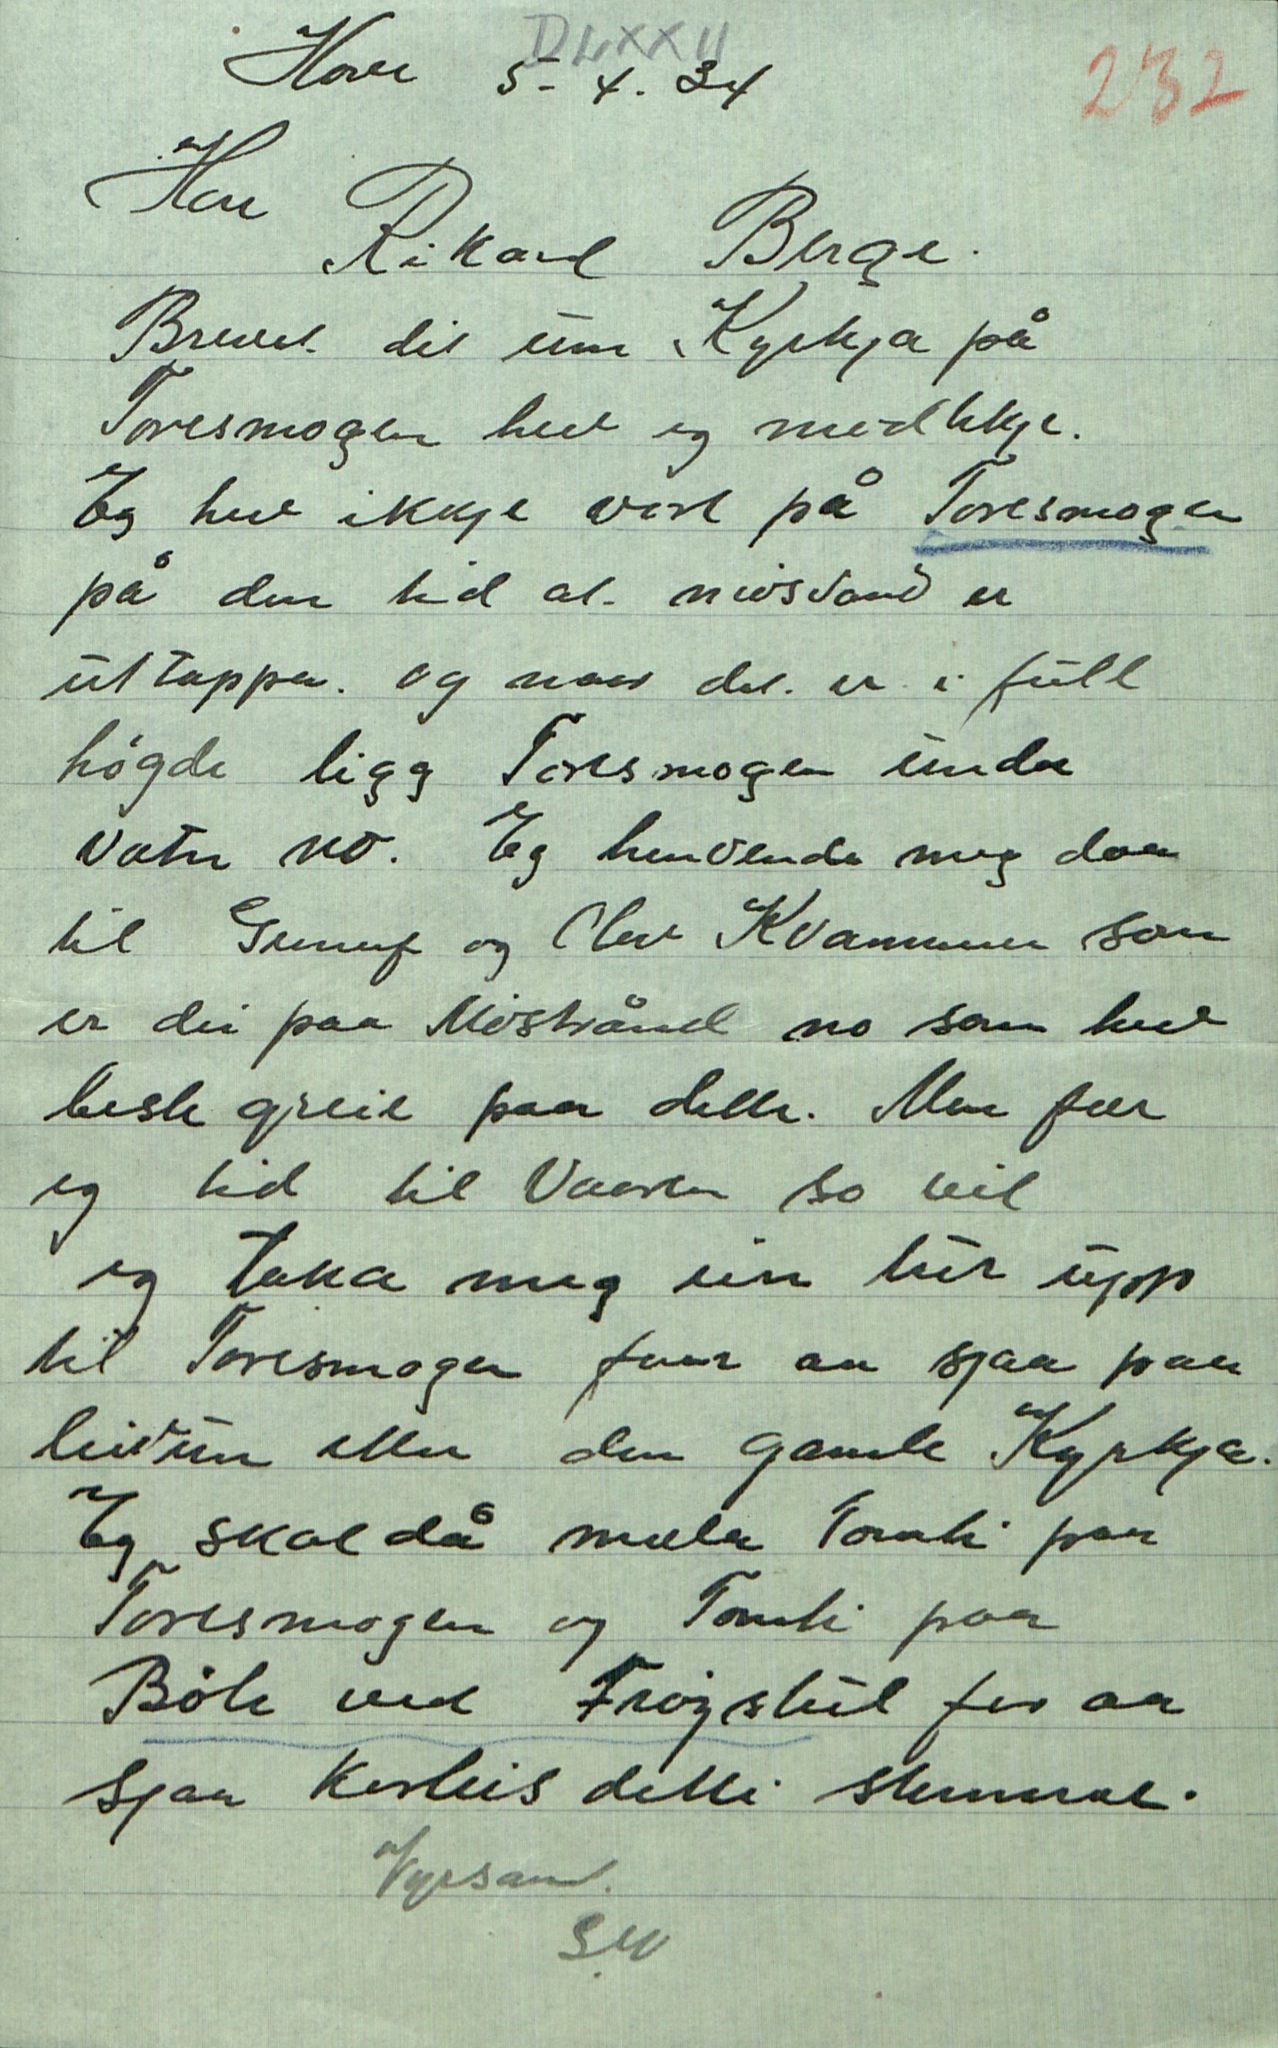 DLXXII
232
Hove 5-4.34
Herr
Rikard Berge.
Brevet dit um Kyrkja på
Toresmogen hev eg
Eg hev ikkje vort på Toresmogen
på den tid at er
uttappa. og naar det. er i full
högde ligg Toresmogen under
vatn no. Eg henvende meg daa
til Gunnuf og Olav Kvammen som
er dei paa Mösstrånd no som hev
beste greie paa dette. Men fær
eg tid til Vaaren so vil
eg taka meg ein tur upp
til Toresmogen for aa sjaa paa
den gamle Kyrkja.
Eg skal då Tomti paa
Toresmogen og Tomti paa
Böle ved Fröystul for aa
sjaa korleis detti stemmar.
Vyrsamt.
S.V